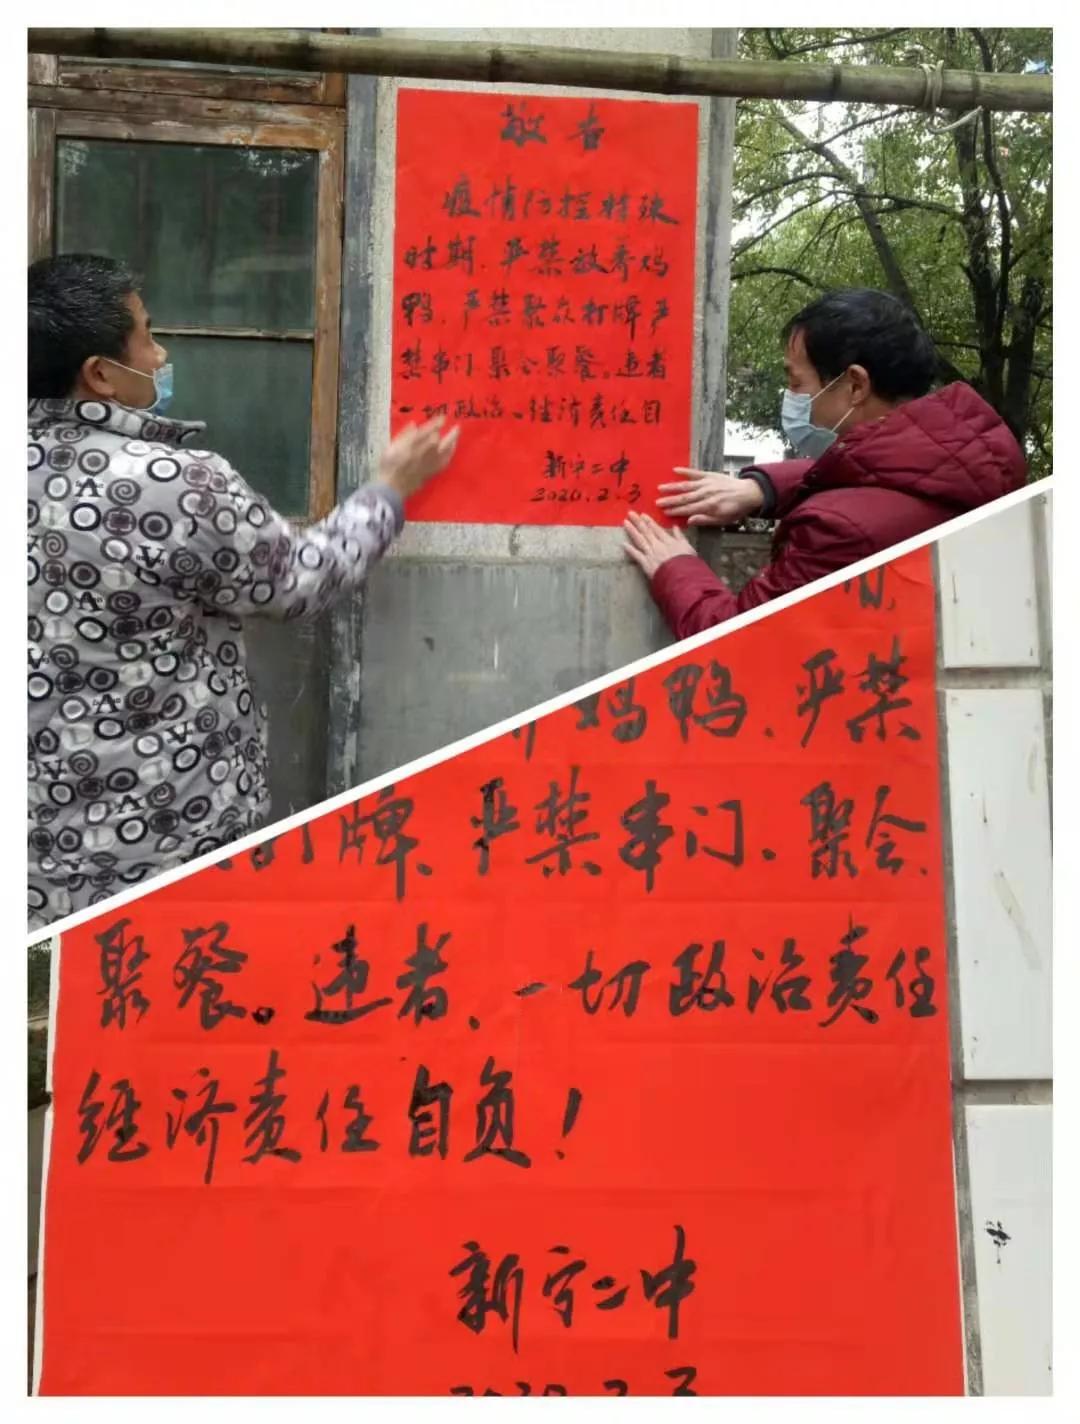 敬告
疫情防控特殊
时期、严禁放养鸡
鸭、严禁聚众打牌严
禁串门聚会聚餐。违者
一切政治、经济责任自
新宁二中
2020.2.3
鸡鸭、严禁
牌、严禁串门、聚会、
聚餐。违者、一切政治责任
经济责任自负！
新宁二中
2020.2.3